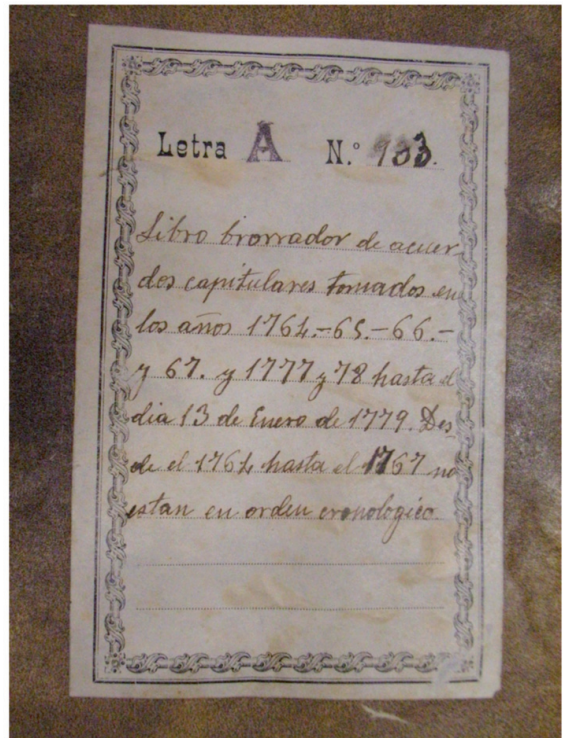 Letra A N.º 133.
Libro brorrador de acuer
dos capitulares tomados en
los años 1764.-65.-66.-
y 67. y 1777 y 78 hasta el
dia 13 de Enero de 1779. Des
de el 1764 hasta el 1767 no
estan en orden cronologico